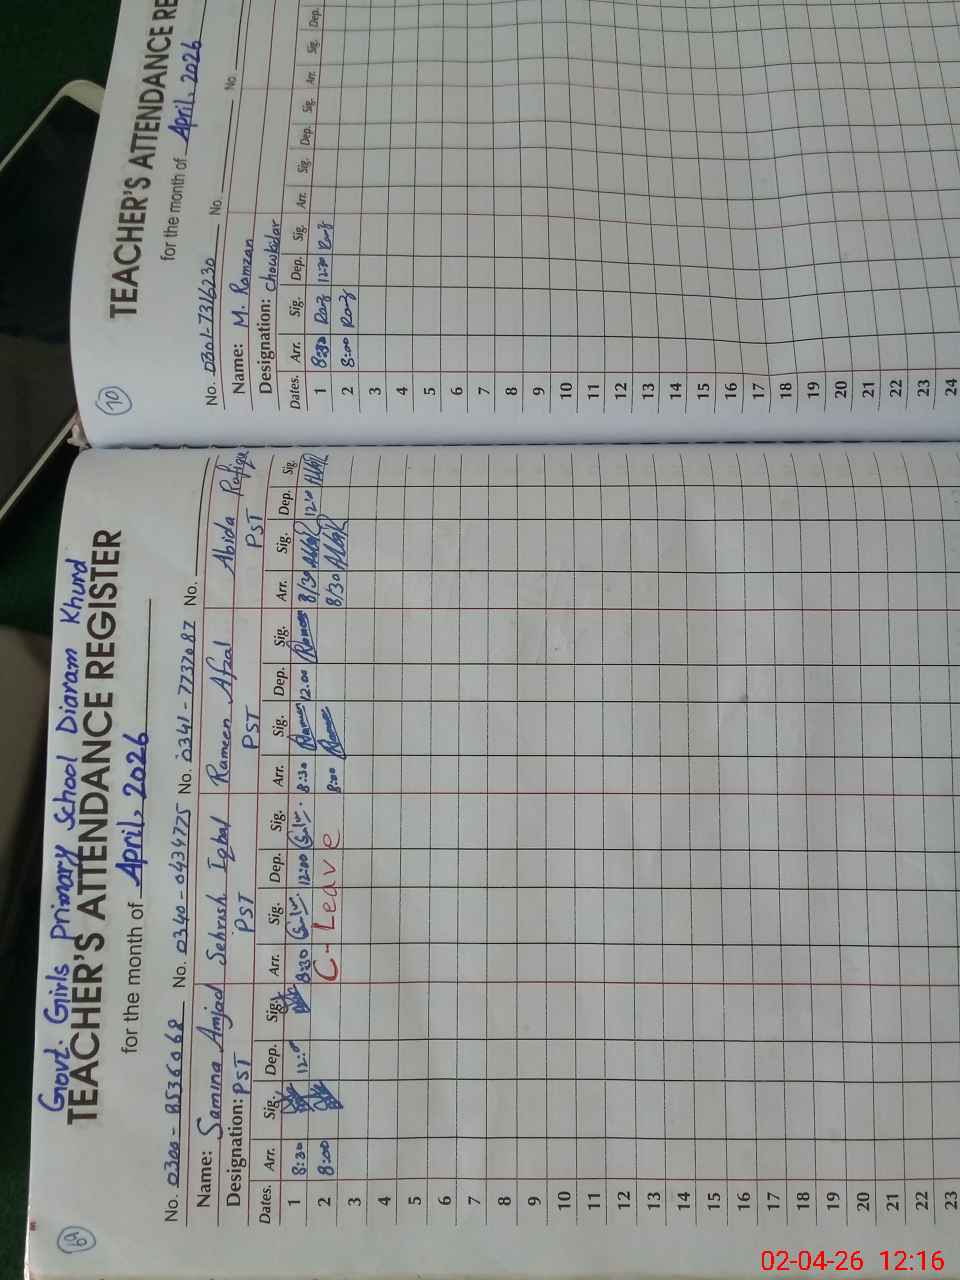 69
Govt. Girls Primary School Diaram Khurd
TEACHER'S ATTENDANCE REGISTER
for the month of April, 2026
No. 0300-8536068 No. 0340-0434775 No. 0341-7737087 No.
Name: Samina Amjad Sehrish Iqbal Rameen Afzal Abida Rafique
Designation: PST PST PST PST
Dates. Arr. Sig. Dep. Sig. Arr. Sig. Dep. Sig. Arr. Sig. Dep. Sig. Arr. Sig. Dep. Sig.
1 8:30 8:30 12:00 8:30 Rameen 12:00 Rameen 8/30
2 8:00 C-Leave 8:00 Rameen 8/30
3
4
5
6
7
8
9
10
11
12
13
14
15
16
17
18
19
20
21
22
23
70
TEACHER'S ATTENDANCE RE
for the month of April, 2026
No. 0301-7316230 No. No.
Name: M. Ramzan
Designation: Chowkidar
Dates. Arr. Sig. Dep. Sig. Arr. Sig. Dep. Sig. Arr. Sig. Dep.
1 8:30 Ramz 12:30 Ramz
2 8:00 Ramz
3
4
5
6
7
8
9
10
11
12
13
14
15
16
17
18
19
20
21
22
23
24
02-04-26 12:16